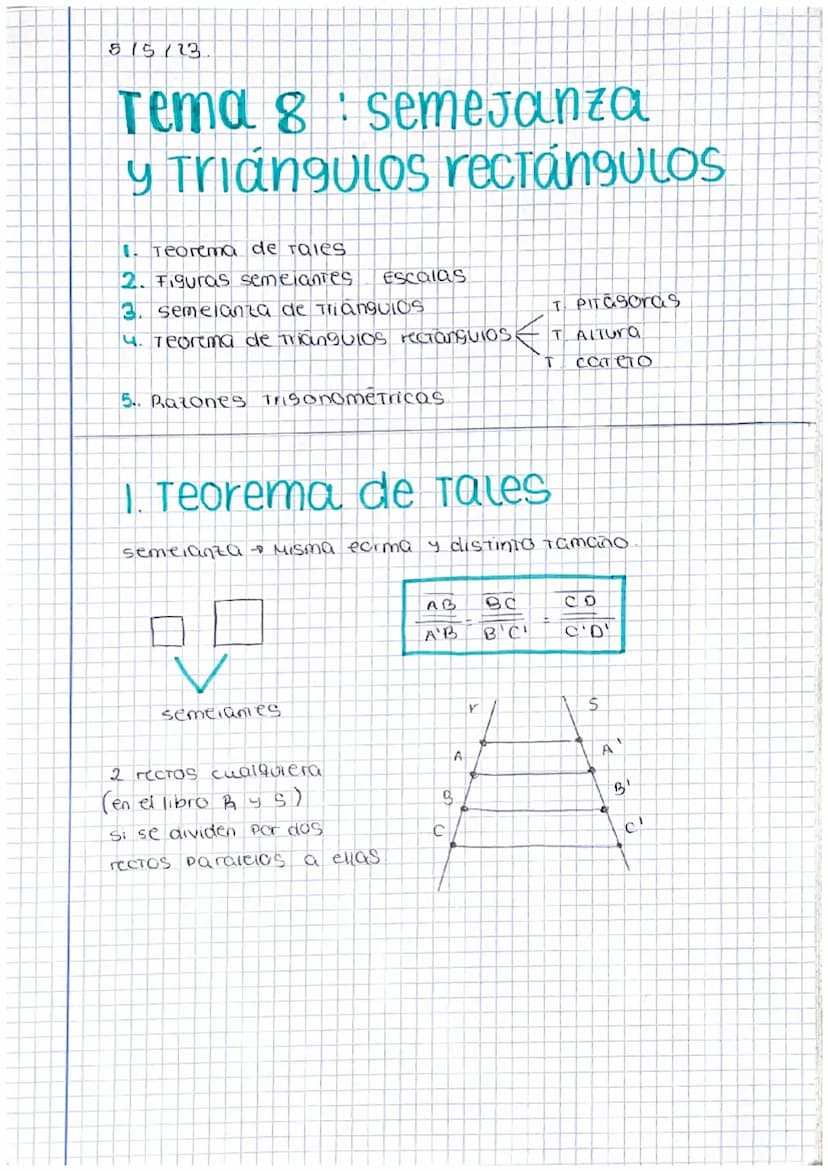 5/5/23.
Tema 8: semejanza
y Triángulos rectángulos
1. Teorema de Tales
2. Figuras semejantes. Escalas
3. semejanza de Triángulos
4. Teorema de Triángulos rectángulos
T. Pitágoras
T. Altura
T. cateto
5.. Razones Trigonométricas.
1. Teorema de Tales
semejanza → Misma forma y distinto Tamaño.
AB/A'B = BC/B'C' = CD/C'D'
semejantes
r
S
A
A'
B
B'
C
C'
2 rectos cualquiera
(en el libro R y S)
si se dividen por dos
rectos paralelos a ellas